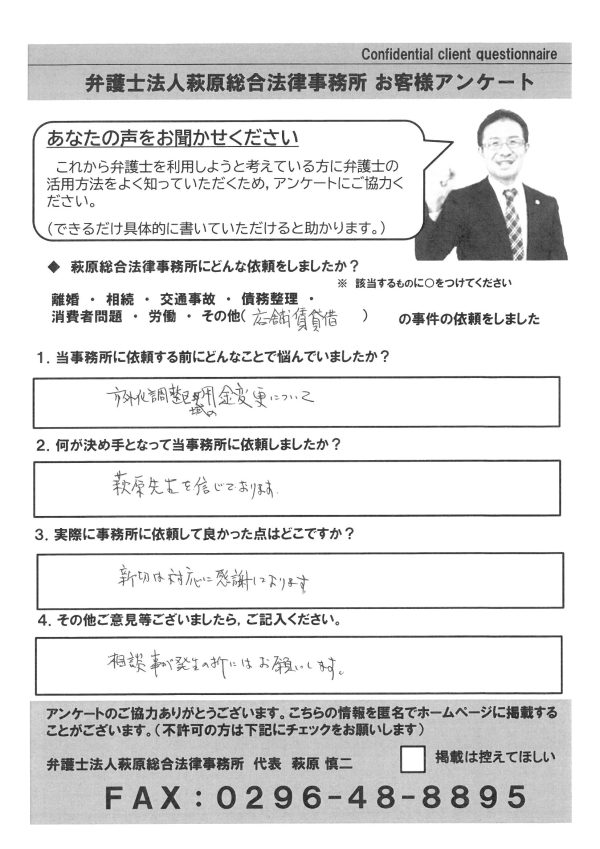 Confidential client questionnaire
弁護士法人萩原総合法律事務所 お客様アンケート
あなたの声をお聞かせください
これから弁護士を利用しようと考えている方に弁護士の
活用方法をよく知っていただくため，アンケートにご協力く
ださい。
（できるだけ具体的に書いていただけると助かります。）
◆ 萩原総合法律事務所にどんな依頼をしましたか？
※ 該当するものに○をつけてください
離婚 ・ 相続 ・ 交通事故 ・ 債務整理 ・
消費者問題 ・ 労働 ・ その他( 店舗賃貸借 ) の事件の依頼をしました
1．当事務所に依頼する前にどんなことで悩んでいましたか？
市街化調整区域の 変更について
2．何が決め手となって当事務所に依頼しましたか？
萩原先生を信じております。
3．実際に事務所に依頼して良かった点はどこですか？
親切な対応に感謝しております
4．その他ご意見等ございましたら，ご記入ください。
相談事が発生の折にはお願いします。
アンケートのご協力ありがとうございます。こちらの情報を匿名でホームページに掲載する
ことがございます。（不許可の方は下記にチェックをお願いします）
弁護士法人萩原総合法律事務所 代表 萩原 慎二 掲載は控えてほしい
FAX：0296-48-8895